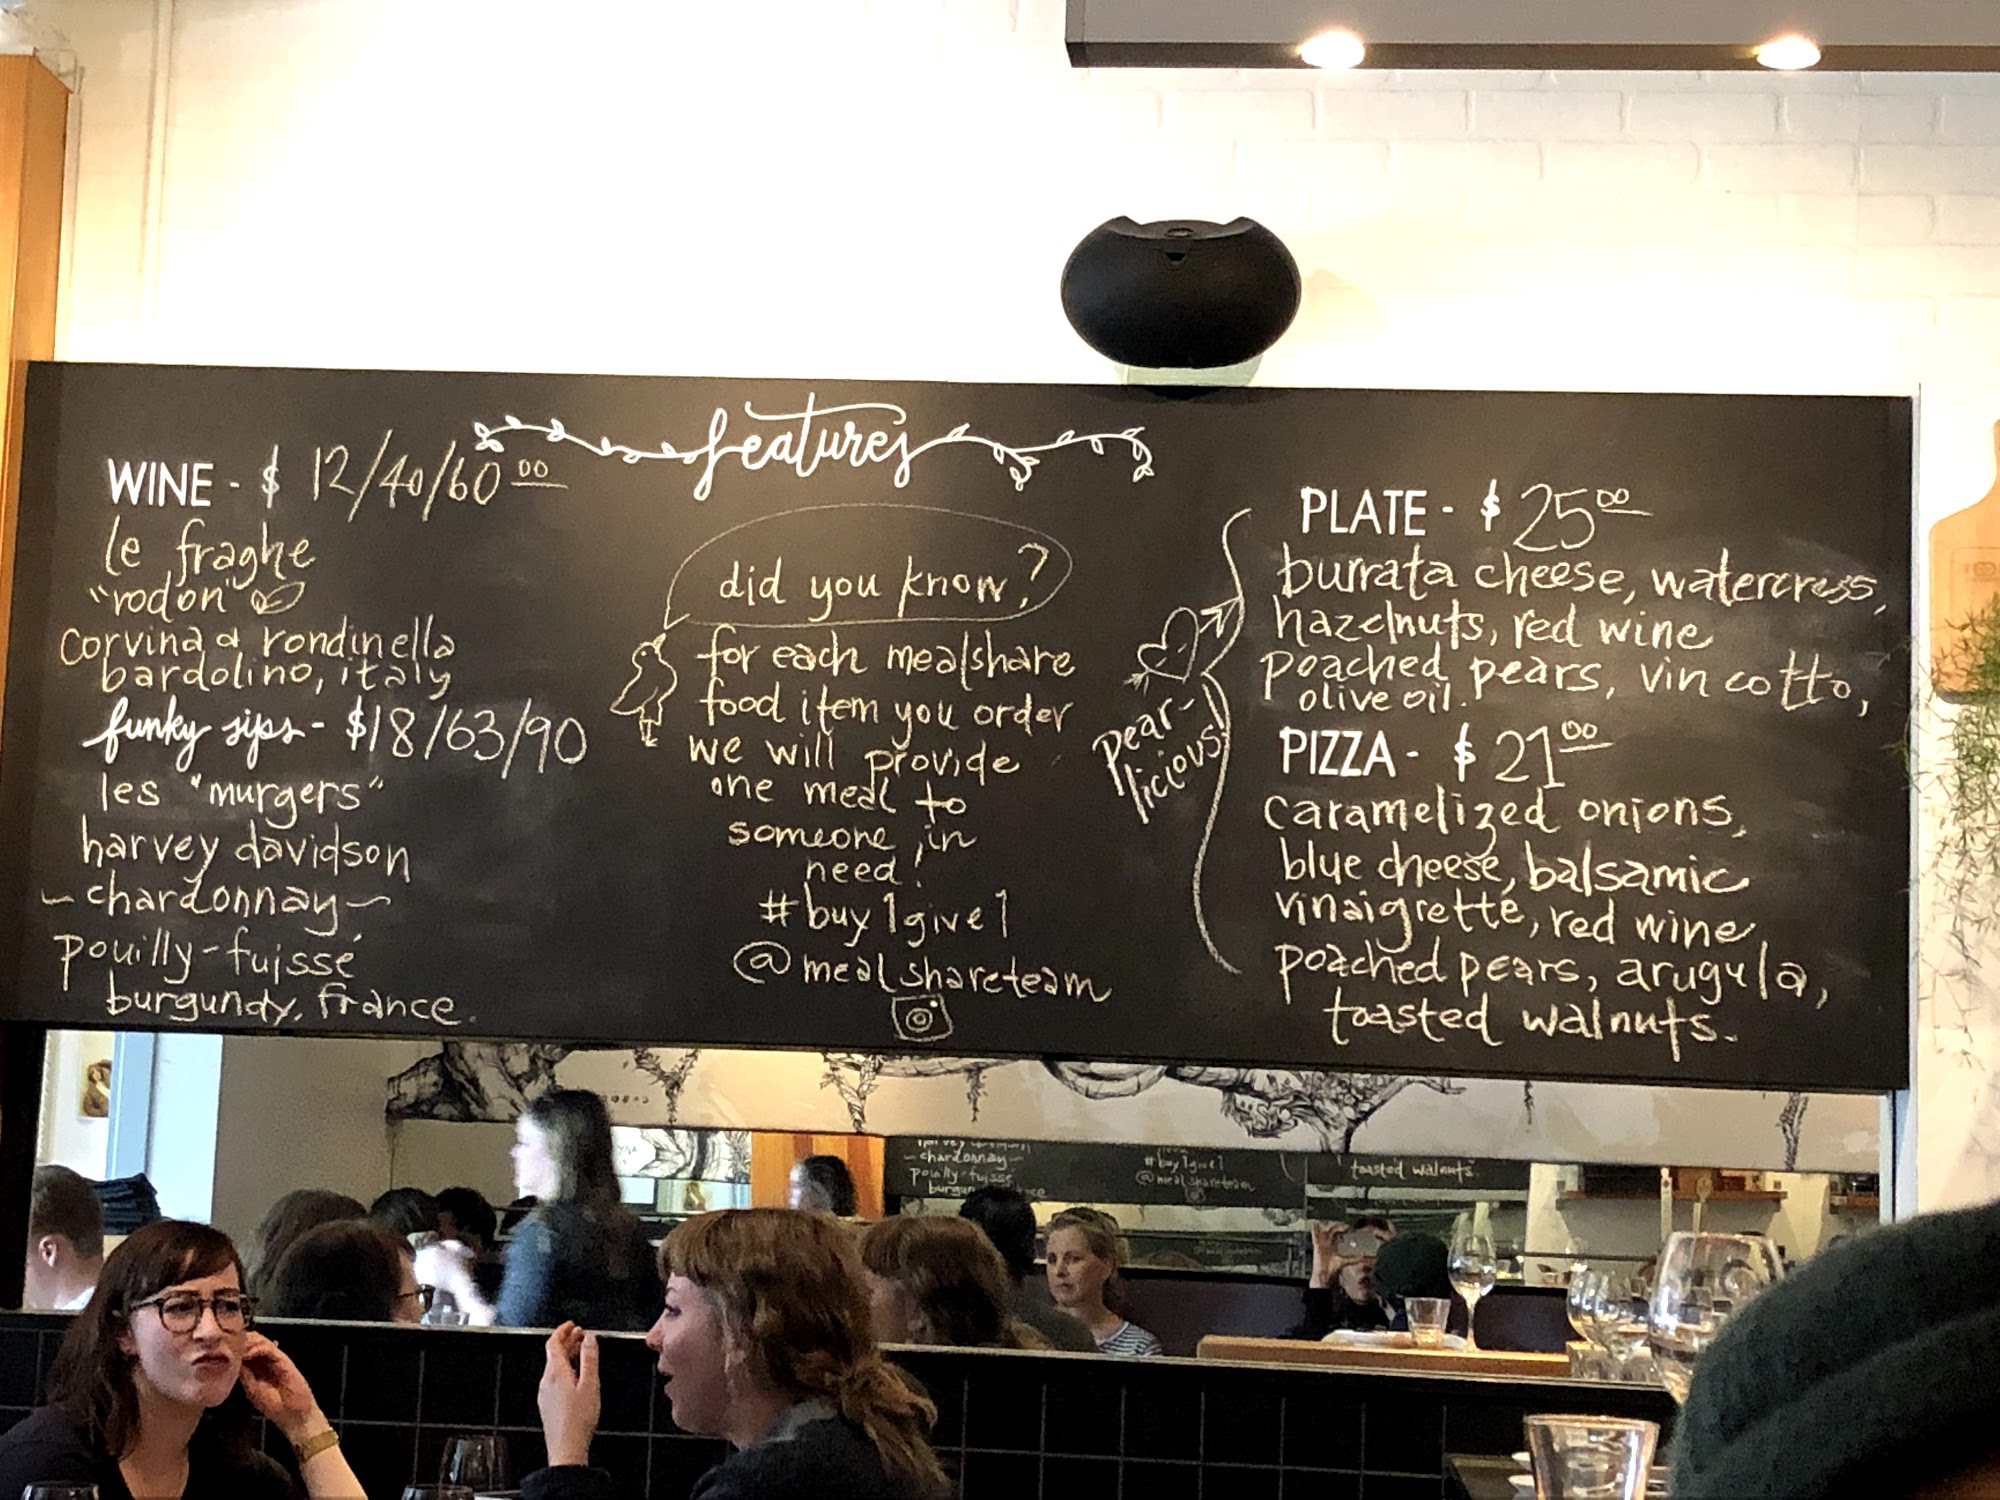 features
WINE - $ 12/40/60 00
le fraghe
"rodon"
corvina & rondinella
bardolino, italy
funky sips - $18/63/90
les "murgers"
harvey davidson
~ chardonnay ~
pouilly-fuissé
burgundy, france.
did you know?
for each mealshare
food item you order
we will provide
one meal to
someone in
need!
#buy1give1
@mealshareteam
Pear-
licious!
PLATE - $ 25 00
burrata cheese, watercress,
hazelnuts, red wine
poached pears, vin cotto,
olive oil.
PIZZA - $ 21 00
caramelized onions,
blue cheese, balsamic
vinaigrette, red wine
poached pears, arugula,
toasted walnuts.
~ chardonnay ~
pouilly-fuissé
#buy1give1
@mealshareteam
toasted walnuts.